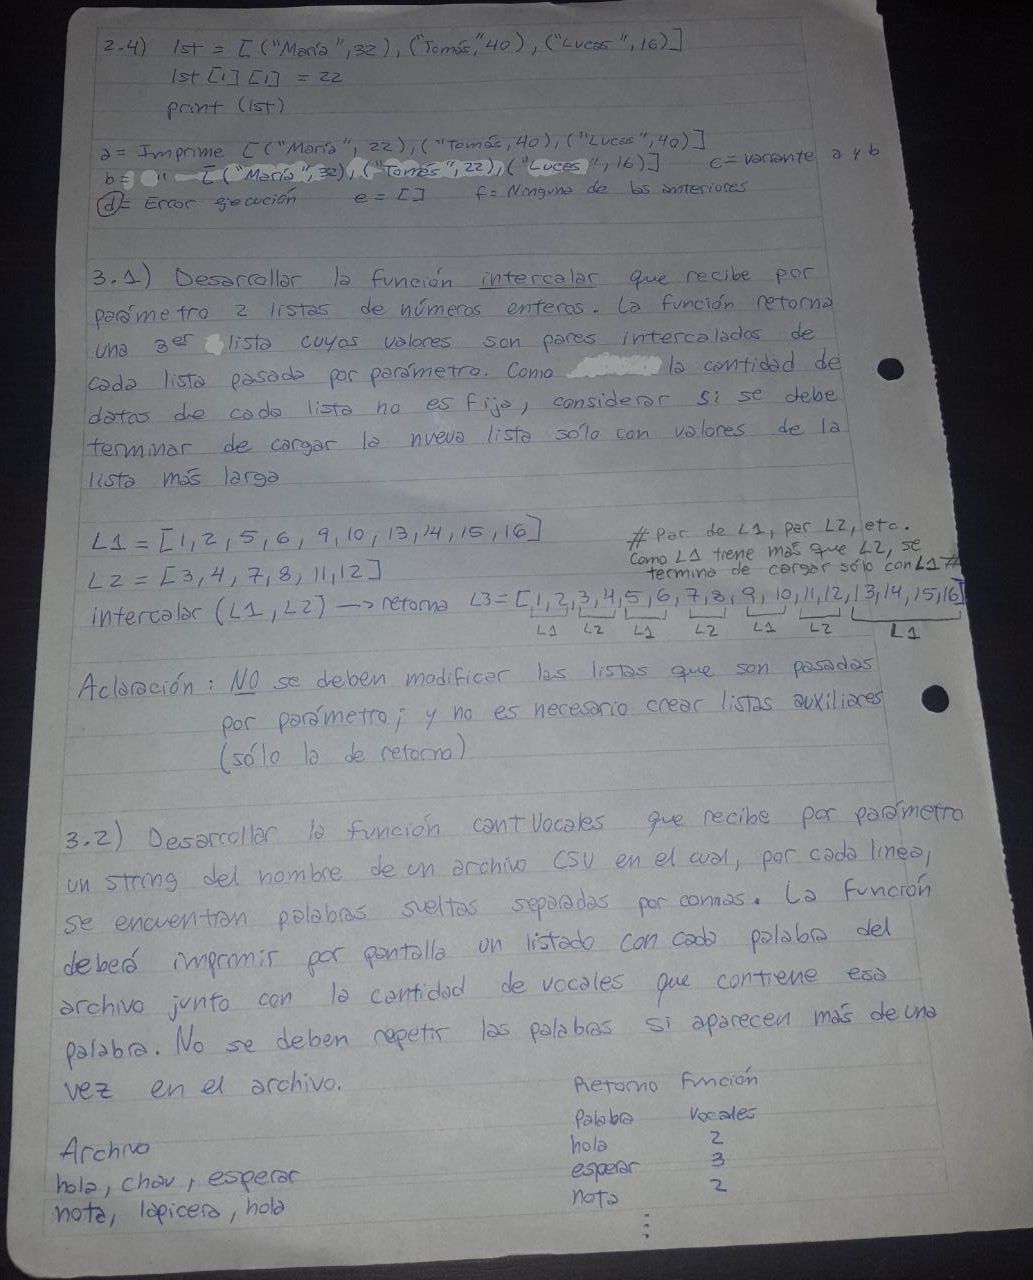 2.4) lst = [("María",32), ("Tomás,"40), ("Lucas",16)]
lst [1] [1] = 22
print (lst)
a = Imprime [("María", 22), ("Tomás, 40), ("Lucas",40)]
b = " — [("María",32), ("Tomás",22), ("Lucas",16)] c = variante a y b
d = Error ejecución e = [] f = Ninguna de las anteriores
3.1) Desarrollar la función intercalar que recibe por
parámetro 2 listas de números enteros. La función retorna
una 3er lista cuyos valores son pares intercalados de
cada lista pasada por parámetro. Como la cantidad de
datos de cada lista no es fija, considerar si se debe
terminar de cargar la nueva lista sólo con valores de la
lista más larga
L1 = [1, 2, 5, 6, 9, 10, 13, 14, 15, 16]
L2 = [3, 4, 7, 8, 11, 12]
# Par de L1, par L2, etc.
Como L1 tiene más que L2, se
termina de cargar sólo con L1 #
intercalar (L1, L2) —> retorna L3 = [1, 2, 3, 4, 5, 6, 7, 8, 9, 10, 11, 12, 13, 14, 15, 16]
L1 L2 L1 L2 L1 L2 L1
Aclaración : NO se deben modificar las listas que son pasadas
por parámetro; y no es necesario crear listas auxiliares
(sólo la de retorno)
3.2) Desarrollar la función cantVocales que recibe por parámetro
un string del nombre de un archivo CSV en el cual, por cada línea,
se encuentran palabras sueltas separadas por comas. La función
deberá imprimir por pantalla un listado con cada palabra del
archivo junto con la cantidad de vocales que contiene esa
palabra. No se deben repetir las palabras si aparecen más de una
vez en el archivo.
Retorno Función
Palabra Vocales
hola 2
esperar 3
nota 2
⋮
Archivo
hola, chau, esperar
nota, lapicera, hola